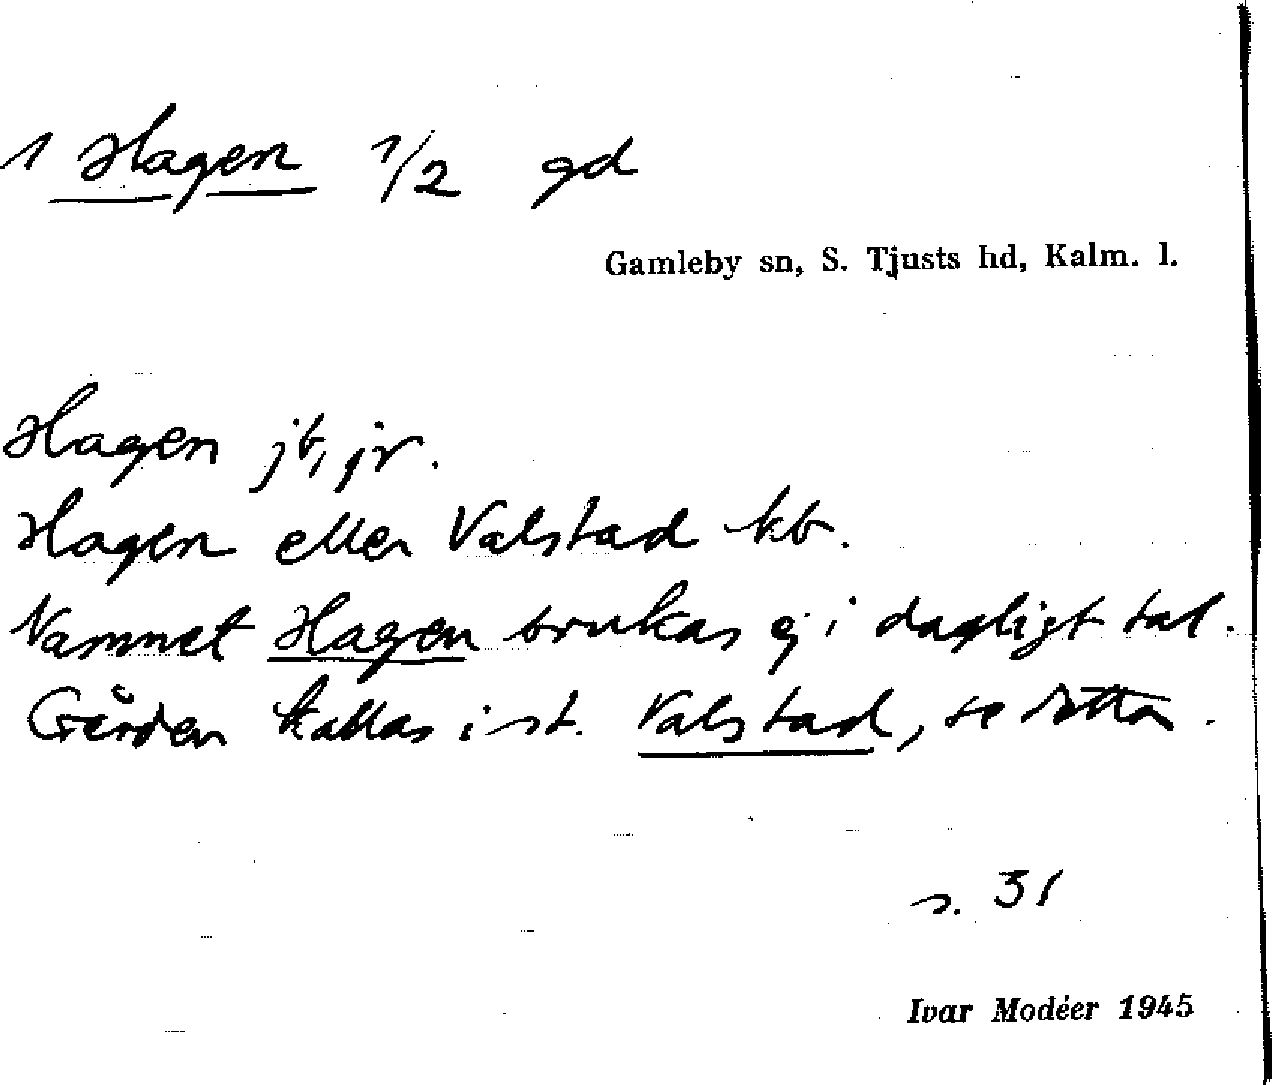 1 Hagen 1/2 gd
Gamleby sn, S. Tjusts hd, Kalm. l.
Hagen jb, jr.
Hagen eller Valstad kb.
Namnet Hagen brukas ej i dagligt tal.
Gården kallas i st. Valstad, se detta.
s. 31
Ivar Modéer 1945